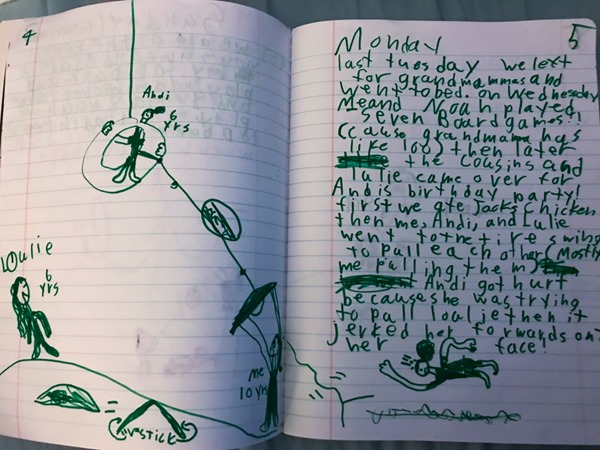 4
Andi
6
yrs
Loulie
6
yrs
me
10 yrs
=
stick
5
Monday
last tuesday we left
for grandmammas and
went to bed. on Wednesday
Me and Noah played
seven Board games!!
(cause grandmama has
like 100) then later
the cousins and
lulie came over for
Andis birthday party!
first we ate Jacks chicken
then me, Andi, and Lulie
went to the tire swing
to pull each other (Mostly
me pulling them)
Andi got hurt
because she was trying
to pull loulie then it
jerked her forwards on
her face!